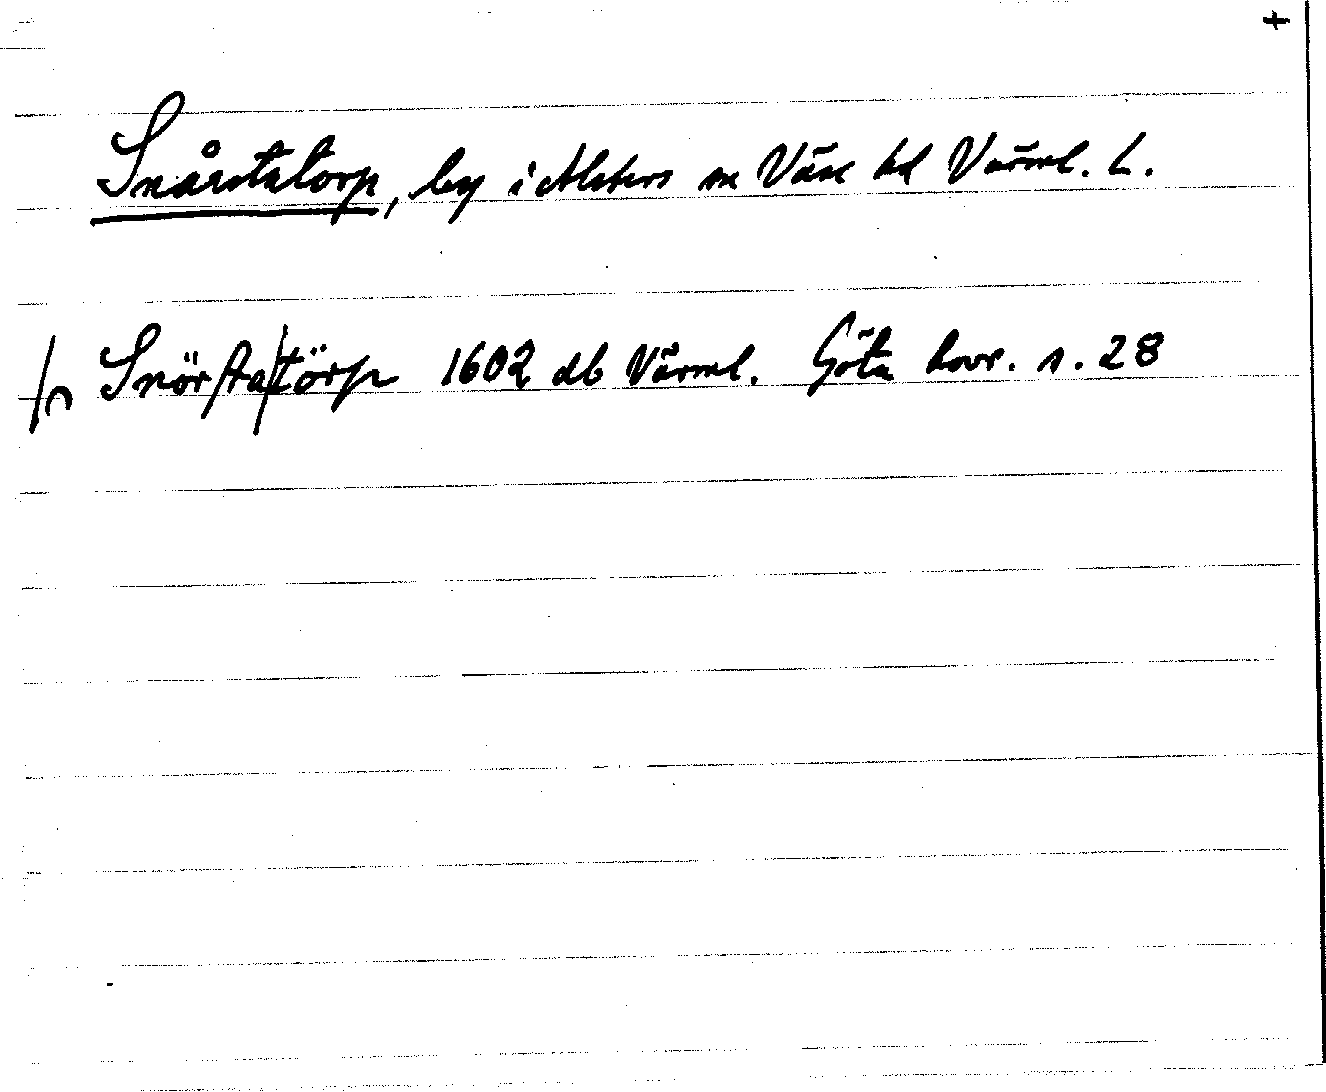 +
Snårstatorp, by i Alsters sn Väse hd Värml. L.
Snörstatörp 1602 db Värml. Göta hovr. s. 28